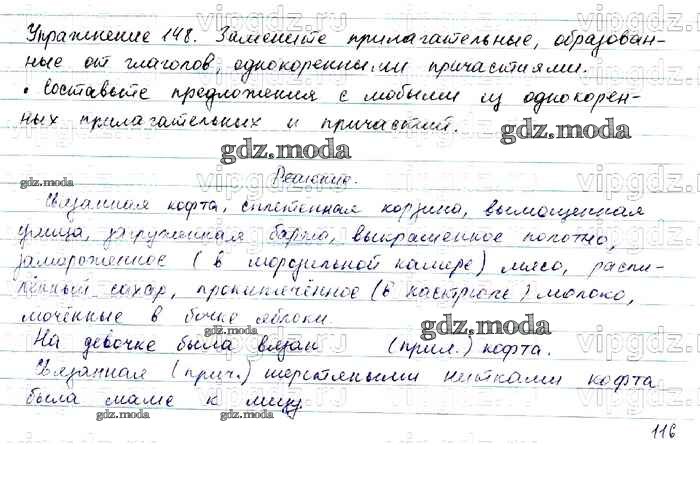 Упражнение 148. Замените прилагательные, образован-
ные от глаголов, однокоренными причастиями.
• Составьте предложения с любыми из однокорен-
ных прилагательных и причастий.
gdz.moda
gdz.moda
Решение.
gdz.moda
Связанная кофта, сплетенная корзина, вымощенная
улица, загруженная баржа, выкрашенное полотно,
замороженное (в морозильной камере) мясо, распи-
ленный сахар, прокипячённое (в кастрюле) молоко,
мочённые в бочке яблоки.
gdz.moda
gdz.moda
На девочке была вязан (прил.) кофта.
Связанная (прич.) шерстяными нитками кофта
была маме к лицу.
gdz.moda
gdz.moda
116